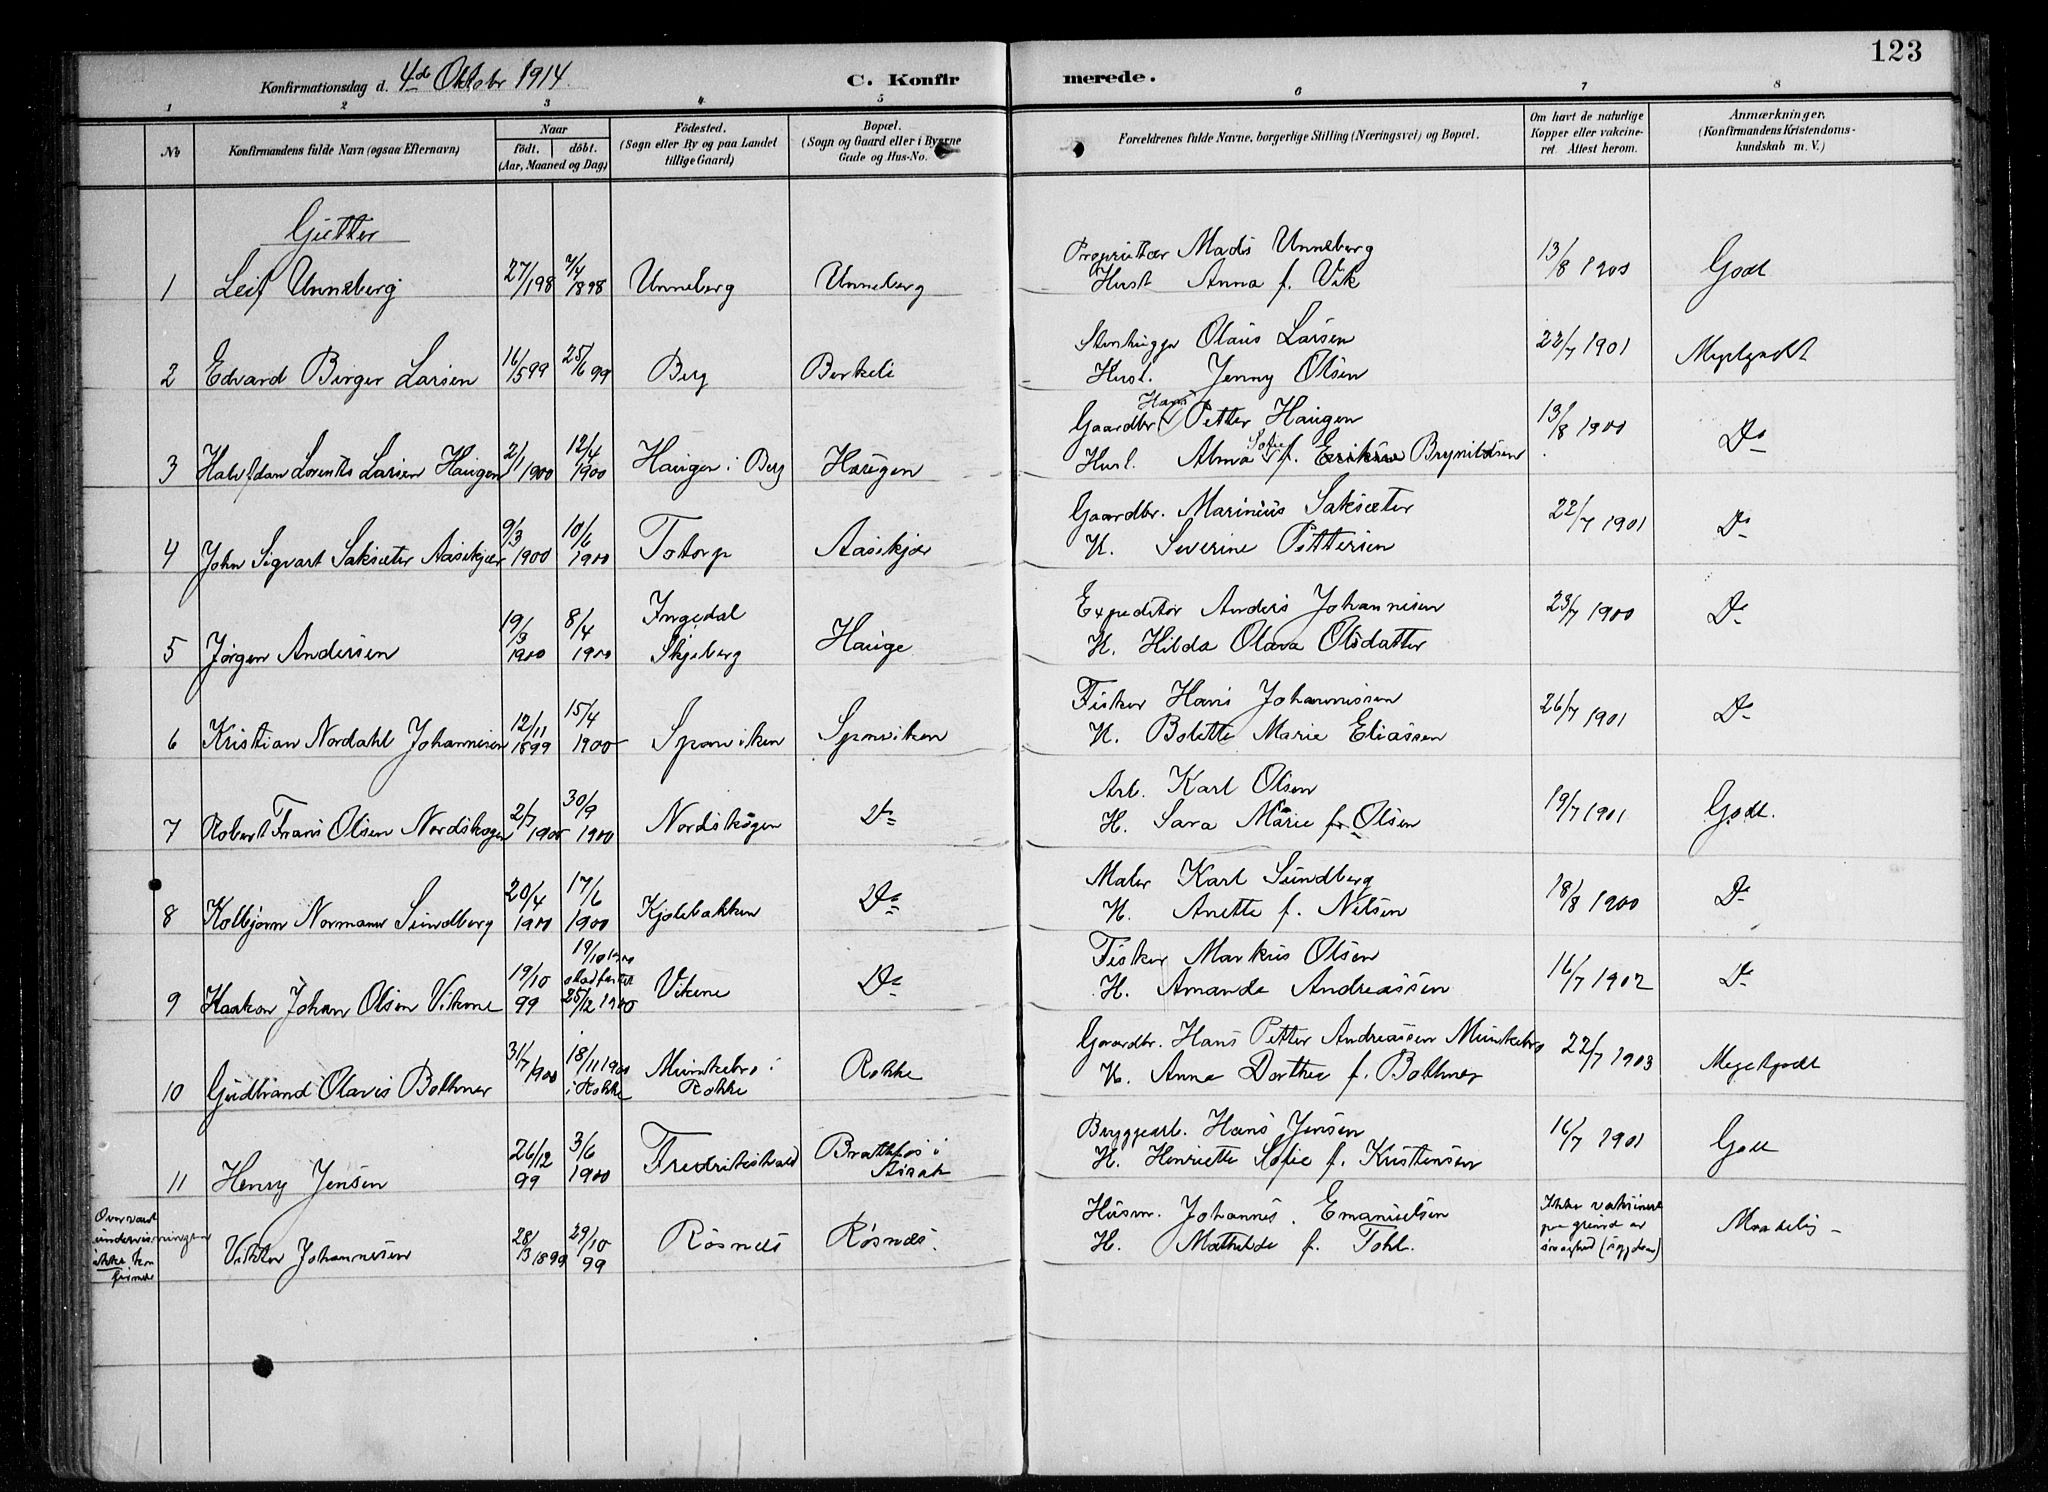 123
Konfirmationsdag d. 4de Oktober 1914. C. Konfirmerede.
1 2 3 4 5 6 7 8
No Konfirmandens fulde Navn (ogsaa Efternavn) Naar födt. döbt. (Aar, Maaned og Dag) Födested. (Sogn eller By og paa Landet tillige Gaard) Bopæl. (Sogn og Gaard eller i Byerne Gade og Hus-No. Forældrenes fulde Navne, borgerlige Stilling (Næringsvei) og Bopæl. Om havt de naturlige Kopper eller vakcineret. Attest herom. Anmærkninger. (Konfirmandens Kristendomskundskab m. V.)
Gutter
1 Leif Unneberg 27/1 98 7/4 1898 Unneberg Unneberg Proprietær Mads Unneberg Hust Anna f. Vik 13/8 1900 Godt
2 Edvard Birger Larsen 16/5 99 25/6 99 Berg Berkeli Stenhugger Olaus Larsen Hust. Jenny Olsen 22/7 1901 Megetgodt
3 Halfdan Lorents Larsen Haugen 2/1 1900 12/4 1900 Haugen i Berg Haugen Gaardbr. Hans Petter Haugen Hust. Alma Sofie f. Brynildsen 13/8 1900 Do
4 John Sigvart Saksæter Aaseskjær 9/3 1900 10/6 1900 Totorp Aaseskjær Gaardbr. Marinius Saksæter H. Severine Pettersen 22/7 1901 Do
5 Jørgen Andersen 19/3 1900 8/4 1900 Ingedal Skjeberg Hauge Expeditør Anders Johannesen H. Hilda Olava Olsdatter 23/7 1900 Do
6 Kristian Nordahl Johannesen 12/11 1899 15/4 1900 Sponviken Sponviken Fisker Hans Johannessen H. Bolette Marie Eliassen 26/7 1901 Do
7 Robert Frans Olsen Nordskogen 2/7 1900 30/9 1900 Nordskogen Do Arb. Karl Olsen H. Sara Marie f. Olsen 19/7 1901 Godt.
8 Kolbjørn Normann Sundberg 20/4 1900 17/6 1900 Kjølebakken Do Maler Karl Sundberg H. Anette f. Nilsen 18/8 1900 Do
9 Haakon Johan Olsen Vikene 19/10 99 19/10 1900 stadfestet 25/12 1900 Vikene Do Fisker Markus Olsen H. Amanda Andreassen 16/7 1902 Do
10 Gudbrand Olavis Bothner 31/7 1900 18/11 1900 i Rokke Munkebro i Rokke Rokke Gaardbr. Hans Petter Andreassen Munkebro H. Anne Dorthea f. Bothner 22/7 1903 Megetgodt
11 Henry Jensen 26/12 99 3/6 1900 Fredrikshald Brattfos i Asak Bryggearb. Hans Jensen H. Henriette Sofie f. Kristensen 16/7 1901 Godt
Overvært undervisningen ikke konfirmert Viktor Johannesen 28/3 1899 29/10 99 Røsnæs Røsnæs. Husm. Johannes Emanuelsen H. Mathilde f. Tohl. Ikke vaksinert paa grund av svaghed (sygdom) Maadelig